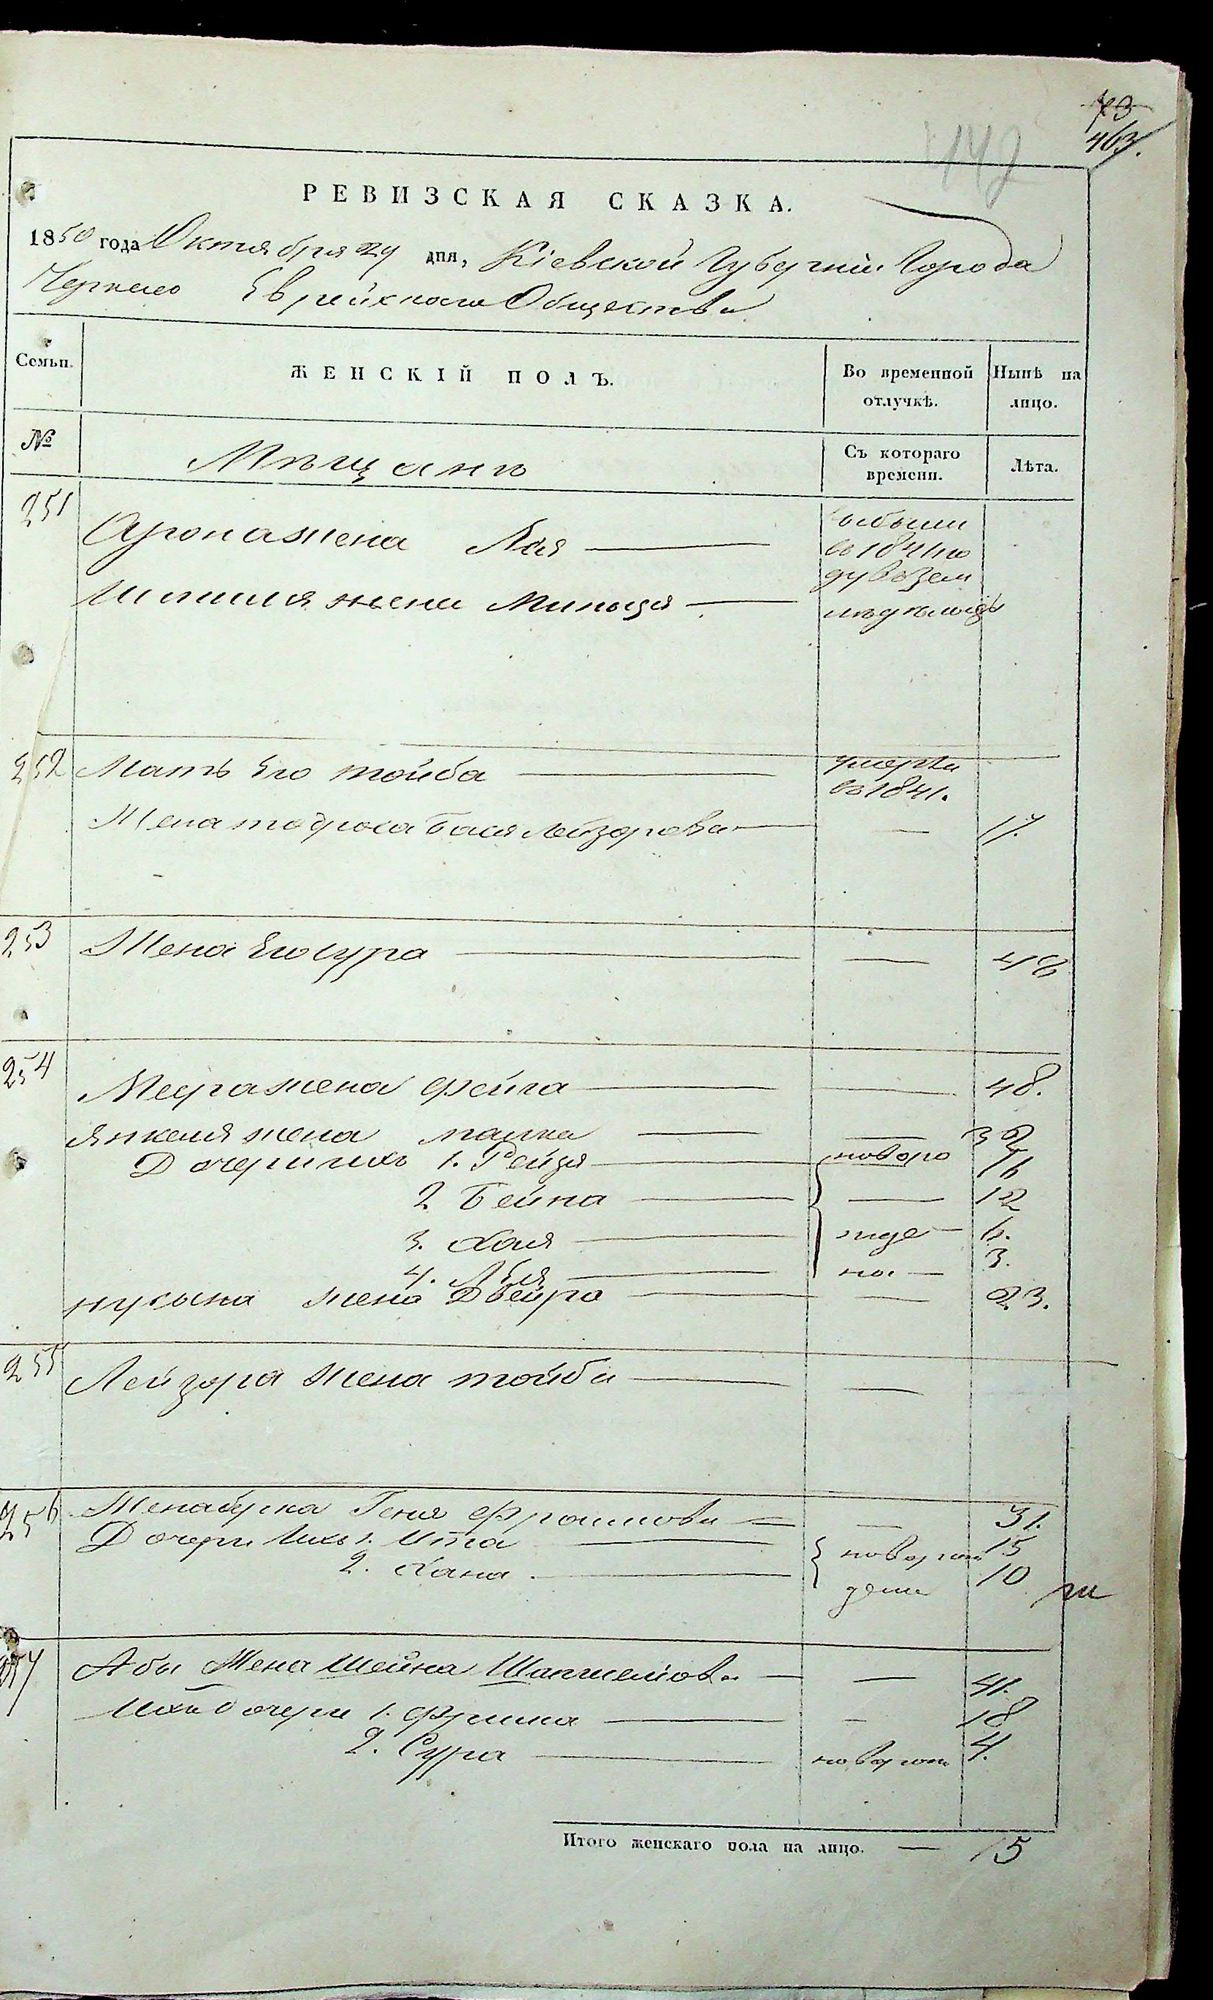 73
463.
142
РЕВИЗСКАЯ СКАЗКА.
1850 года Октября 29 дня, Кіевской Губерніи Города
Черкасъ Еврейскаго Общества
Семьи. ЖЕНСКІЙ ПОЛЪ. Во временной отлучкѣ. Нынѣ на лицо.
№ Мѣщанъ Съ котораго времени. Лѣта.
251 Арона жена Хая — выбыли
въ 1841 го
ду въ Зем
Шмиля жена Минця —
252 Мать Его тойба — умерла
въ 1841.
Жена тодроса Бася Лейзорова — — 17.
253 Жена Его сура — — 48
254 Меера жена фейга — — 48.
янкеля жена малка — — 32
Дочери ихъ 1. Рейзя — новоро 16
2. Бейла — — 12
3. Хая — жде — 6.
4. Лея — ны — 3.
нусына жена Двейра — — 23.
255 Лейзора жена тойба — —
256 Жена Геня Фроимова — — 31.
Дочери Ихъ 1. Ита — новорож 15
2. Хана. — дены 10
257 Абы Жена Шейна — — 41.
Ихъ дочери 1. Фрима — — 18
2. Сура — новорож 4.
Итого женскаго пола на лицо. — 15